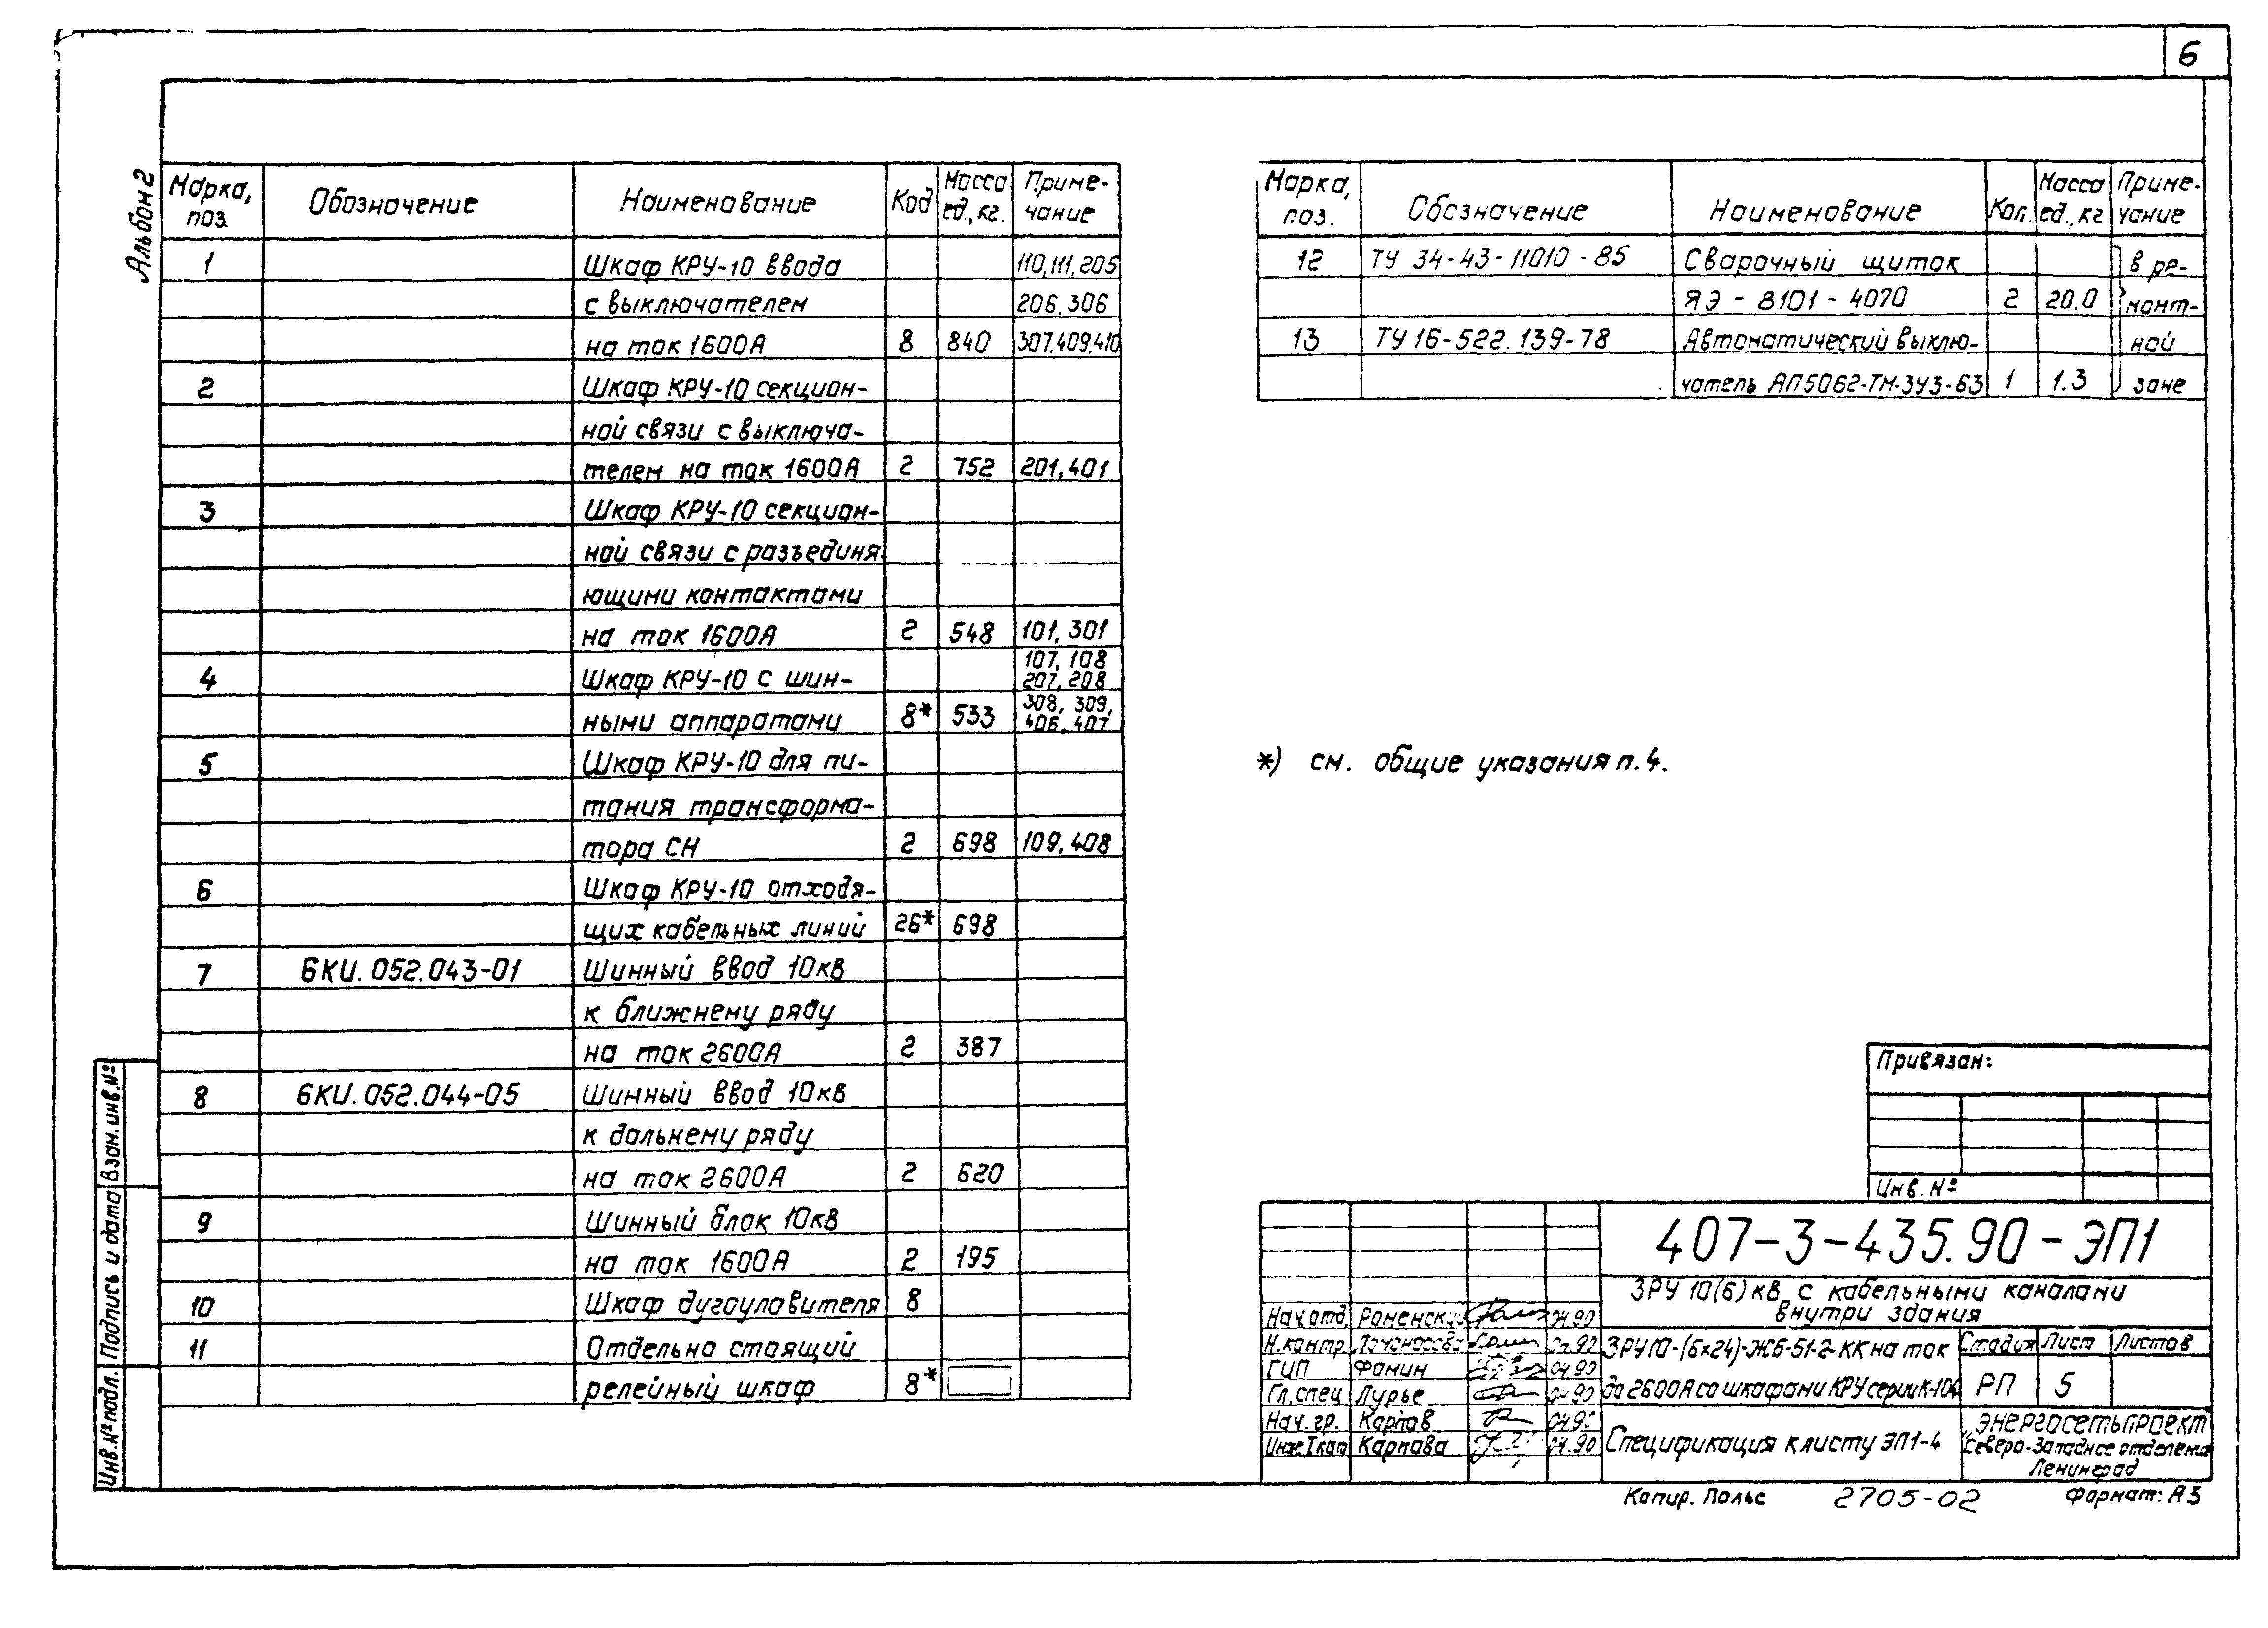 6
Альбом 2
Марка, поз. Обозначение Наименование Код Масса ед., кг. Приме-чание
1 Шкаф КРУ-10 ввода 110,111,205
с выключателем 206,306
на ток 1600А 8 840 307,409,410
2 Шкаф КРУ-10 секцион-
ной связи с выключа-
телем на ток 1600А 2 752 201,401
3 Шкаф КРУ-10 секцион-
ной связи с разъединя-
ющими контактами
на ток 1600А 2 548 101,301
107,108
4 Шкаф КРУ-10 с шин- 207,208
308,309,
ными аппаратами 8* 533 406,407
5 Шкаф КРУ-10 для пи-
тания трансформа-
тора СН 2 698 109,408
6 Шкаф КРУ-10 отходя-
щих кабельных линий 26* 698
7 6КИ.052.043-01 Шинный ввод 10кв
к ближнему ряду
на ток 2600А 2 387
8 6КИ.052.044-05 Шинный ввод 10кв
к дальнему ряду
на ток 2600А 2 620
9 Шинный блок 10кв
на ток 1600А 2 195
10 Шкаф дугоуловителя 8
11 Отдельно стоящий
релейный шкаф 8*
Марка, поз. Обозначение Наименование Кол. Масса ед., кг Приме-чание
12 ТУ 34-43-11010-85 Сварочный щиток в ре-
ЯЭ-8101-4070 2 20.0 монт-
13 ТУ 16-522.139-78 Автоматический выклю- ной
чатель АП5062-ТМ-3У3-63 1 1.3 зоне
*) см. общие указания п.4.
Привязан:
Инв. №
407-3-435.90-ЭП1
ЗРУ 10(6) кв с кабельными каналами
внутри здания
Нач.отд. Роменский 04.90
Н.контр. 04.90
ГИП Фомин 04.90
Гл.спец Лурье 04.90
Нач.гр. Карпов 04.90
Инж.Iкат Карпова 04.90
ЗРУ10-(6х24)-ЖБ-51-2-КК на ток
до 2600А со шкафами КРУ серии К-104
Стадия Лист Листов
РП 5
Спецификация к листу ЭП1-4
Энергосетьпроект
Северо-Западное отделение
Ленинград
Копир. Польс 2705-02 Формат: А3
Взам.инв.№
Подпись и дата
Инв.№ подл.